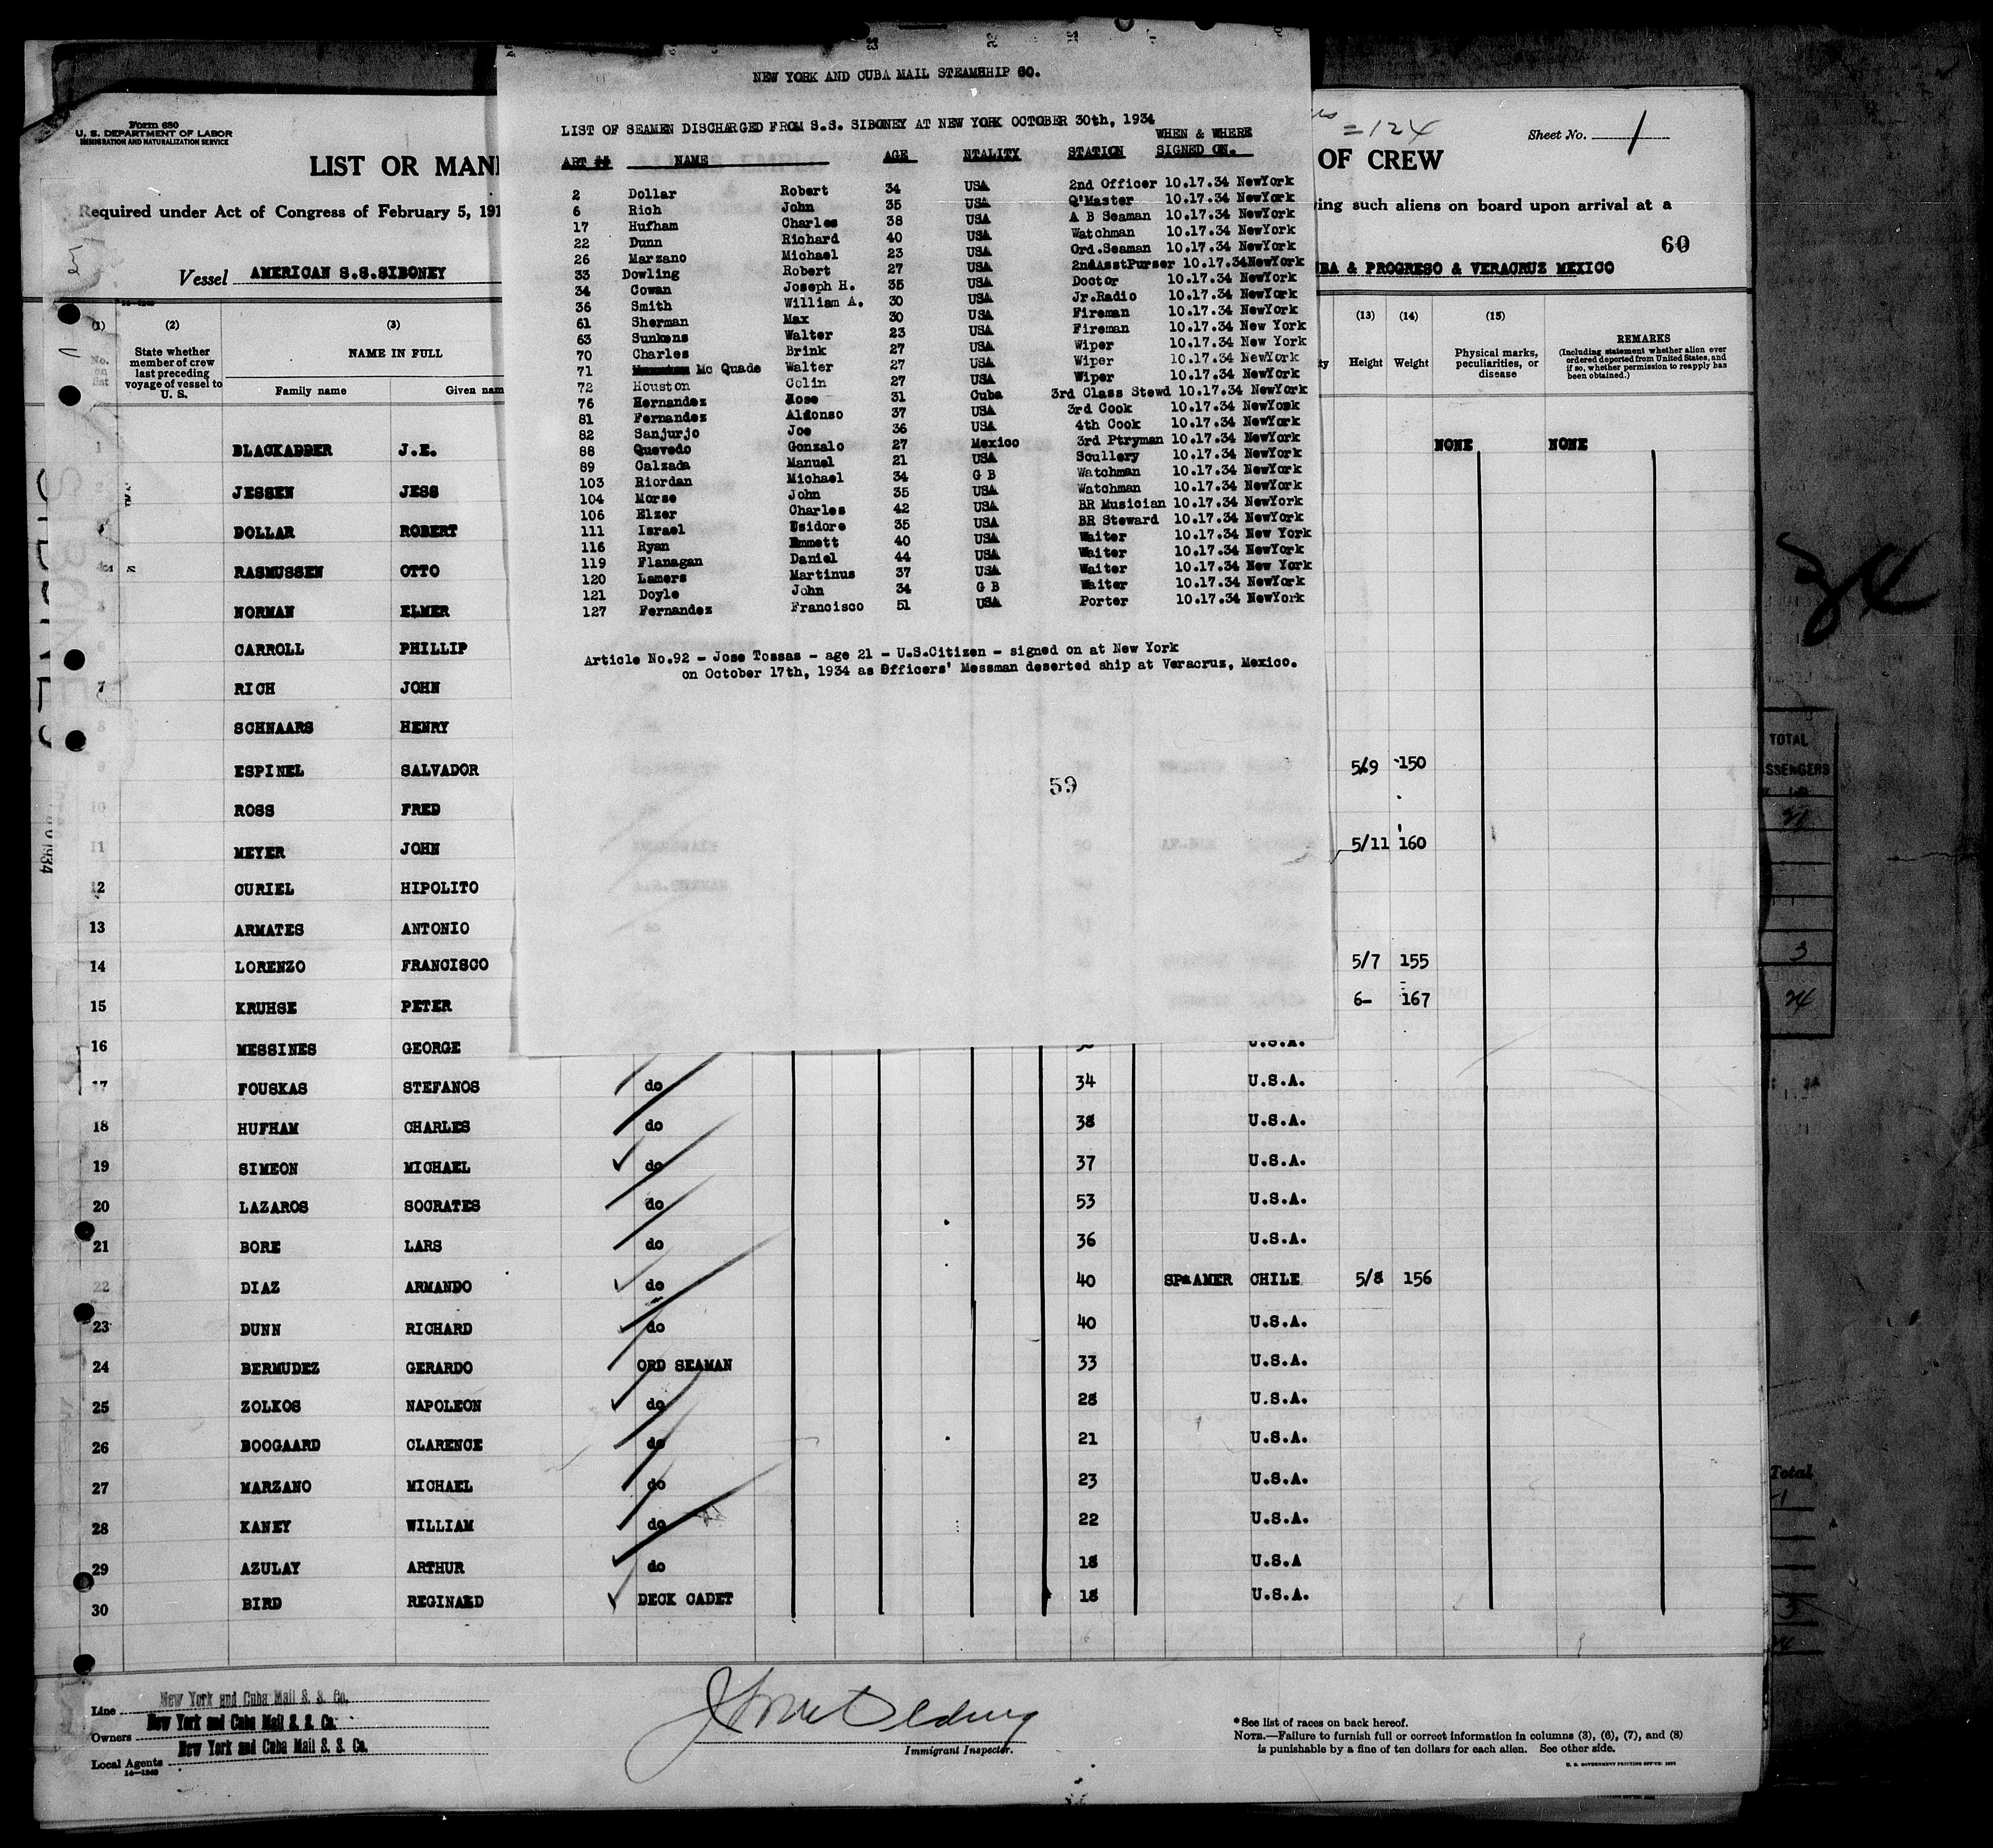 NEW YORK AND CUBA MAIL STEAMSHIP CO.
LIST OF SEAMEN DISCHARGED FROM S.S. SIBONEY AT NEW YORK OCTOBER 30th, 1934
ART ## NAME AGE NTALITY STATION WHEN & WHERE SIGNED ON.
2 Dollar Robert 34 USA 2nd Officer 10.17.34 NewYork
6 Rich John 35 USA Q'Master 10.17.34 NewYork
17 Hufham Charles 38 USA A B Seaman 10.17.34 NewYork
22 Dunn Richard 40 USA Watchman 10.17.34 NewYork
26 Marzano Michael 23 USA Ord.Seaman 10.17.34 NewYork
33 Dowling Robert 27 USA 2ndAsstPurser 10.17.34NewYork
34 Cowan Joseph H. 35 USA Doctor 10.17.34 NewYork
36 Smith William A. 30 USA Jr.Radio 10.17.34 NewYork
61 Sherman Max 30 USA Fireman 10.17.34 NewYork
63 Sunkens Walter 23 USA Fireman 10.17.34 New York
70 Charles Brink 27 USA Wiper 10.17.34 New York
71 Mc Quade Walter 27 USA Wiper 10.17.34 NewYork
72 Houston Colin 27 USA Wiper 10.17.34 NewYork
76 Hernandez Jose 31 Cuba 3rd Class Stewd 10.17.34 NewYork
81 Fernandez Alfonso 37 USA 3rd Cook 10.17.34 NewYork
82 Sanjurjo Joe 36 USA 4th Cook 10.17.34 NewYork
88 Quevedo Gonzalo 27 Mexico 3rd Ptryman 10.17.34 NewYork
89 Calzada Manuel 21 USA Scullery 10.17.34 NewYork
103 Riordan Michael 34 G B Watchman 10.17.34 NewYork
104 Morse John 35 USA Watchman 10.17.34 NewYork
106 Elzer Charles 42 USA BR Musician 10.17.34 NewYork
111 Israel Isidore 35 USA BR Steward 10.17.34 NewYork
116 Ryan Emmett 40 USA Waiter 10.17.34 New York
119 Flanagan Daniel 44 USA Waiter 10.17.34 NewYork
120 Lamers Martinus 37 USA Waiter 10.17.34 New York
121 Doyle John 34 G B Waiter 10.17.34 NewYork
127 Fernandez Francisco 51 USA Porter 10.17.34 NewYork
Article No.92 - Jose Tossas - age 21 - U.S.Citizen - signed on at New York
on October 17th, 1934 as Officers' Messman deserted ship at Veracruz, Mexico.
59
Form 680
U. S. DEPARTMENT OF LABOR
IMMIGRATION AND NATURALIZATION SERVICE
=124
Sheet No. 1
LIST OR MANI OF CREW
Required under Act of Congress of February 5, 191 ving such aliens on board upon arrival at a
60
Vessel AMERICAN S.S.SIBONEY BA & PROGRESO & VERACRUZ MEXICO
(1) (2) (3) (13) (14) (15)
No. on list
State whether member of crew last preceding voyage of vessel to U. S.
NAME IN FULL
Family name Given nam
Height Weight
Physical marks, peculiarities, or disease
REMARKS
(Including statement whether alien ever ordered deported from United States, and if so, whether permission to reapply has been obtained.)
1 BLACKADDER J.E. NONE NONE
JESSEN JESS
DOLLAR ROBERT
RASMUSSEN OTTO
NORMAN ELMER
6 CARROLL PHILLIP
7 RICH JOHN
8 SCHNAARS HENRY
9 ESPINEL SALVADOR 5/9 150
10 ROSS FRED
11 MEYER JOHN 5/11 160
12 CURIEL HIPOLITO
13 ARMATES ANTONIO
14 LORENZO FRANCISCO 5/7 155
15 KRUHSE PETER 6- 167
16 MESSINES GEORGE U.S.A.
17 FOUSKAS STEFANOS do 34 U.S.A.
18 HUFHAM CHARLES do 38 U.S.A.
19 SIMEON MICHAEL do 37 U.S.A.
20 LAZAROS SOCRATES do 53 U.S.A.
21 BORE LARS do 36 U.S.A.
22 DIAZ ARMANDO do 40 SP&AMER CHILE 5/8 156
23 DUNN RICHARD do 40 U.S.A.
24 BERMUDEZ GERARDO ORD SEAMAN 33 U.S.A.
25 ZOLKOS NAPOLEON do 28 U.S.A.
26 BOOGAARD CLARENCE do 21 U.S.A.
27 MARZANO MICHAEL do 23 U.S.A.
28 KANEY WILLIAM do 22 U.S.A.
29 AZULAY ARTHUR do 18 U.S.A
30 BIRD REGINALD DECK CADET 18 U.S.A.
Line New York and Cuba Mail S. S. Co.
Owners New York and Cuba Mail S. S. Co.
Local Agents New York and Cuba Mail S. S. Co.
14-1240
Immigrant Inspector.
*See list of races on back hereof.
NOTE.—Failure to furnish full or correct information in columns (3), (6), (7), and (8)
is punishable by a fine of ten dollars for each alien. See other side.
TOTAL
SSENGERS
3
24
Total